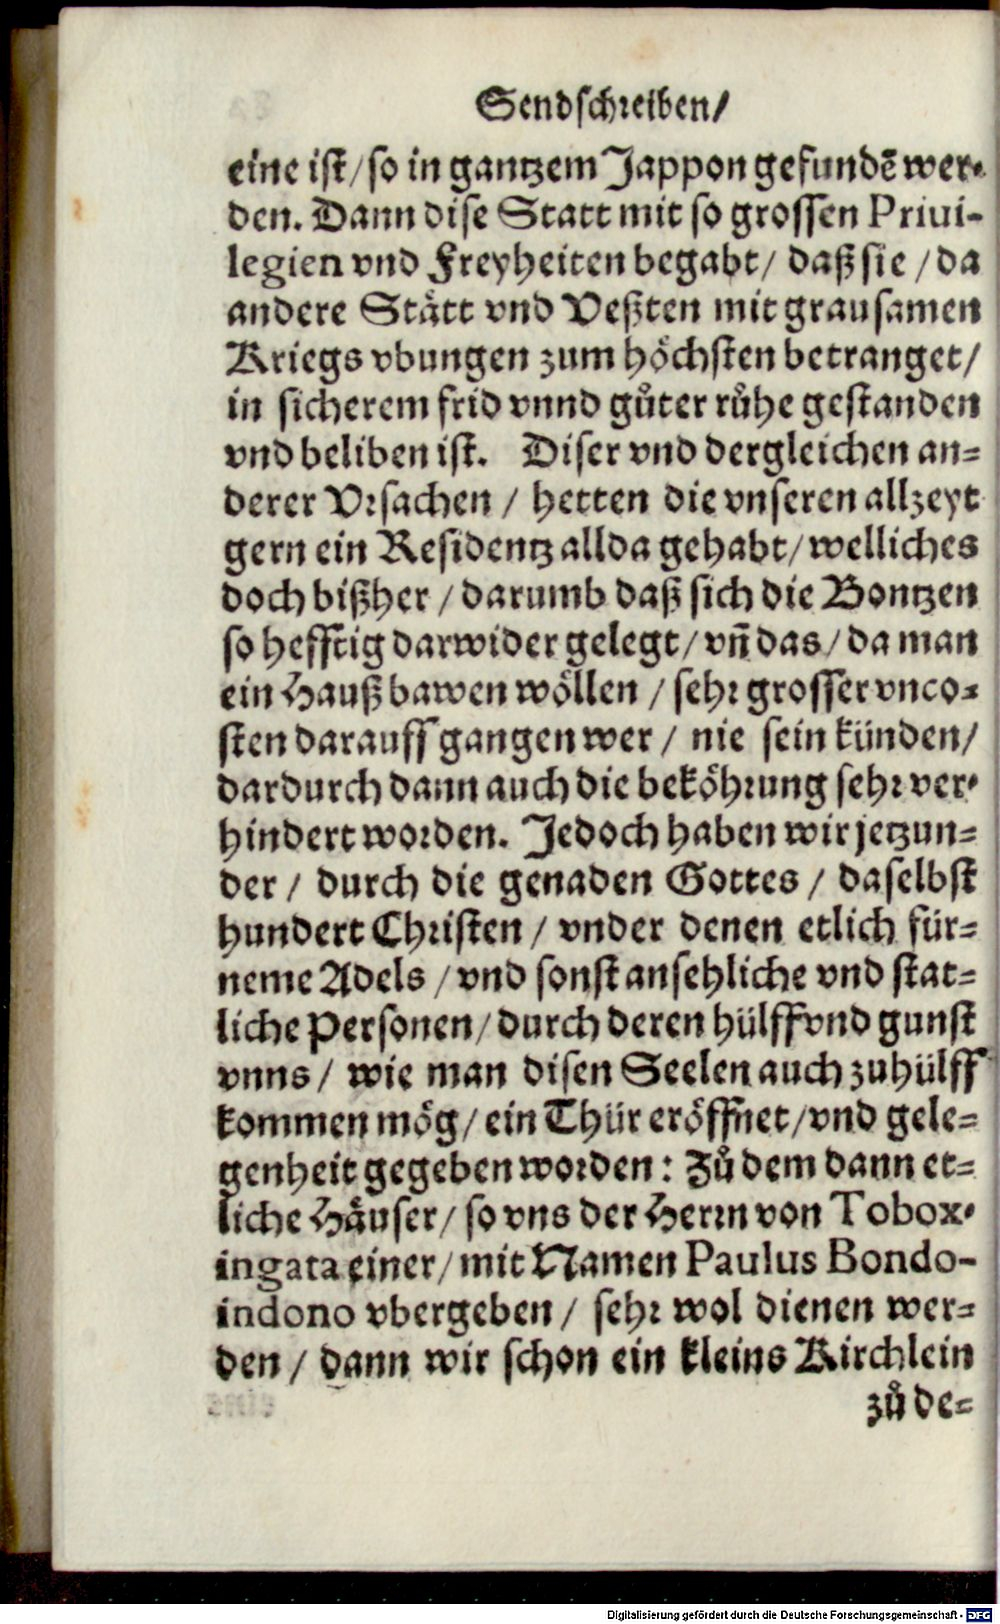 Sendschreiben/
eine ist/ so in gantzem Jappon gefundẽ wer-
den. Dann dise Statt mit so grossen Priui-
legien vnd Freyheiten begabt/ daß sie / da
andere Stätt vnd Veßten mit grausamen
Kriegs vbungen zum höchsten betranget/
in sicherem frid vnnd gůter růhe gestanden
vnd beliben ist. Diser vnd dergleichen an-
derer Vrsachen / hetten die vnseren allzeyt
gern ein Residentz allda gehabt/ welliches
doch bißher / darumb daß sich die Bontzen
so hefftig darwider gelegt/ vñ das/ da man
ein Hauß bawen wöllen / sehr grosser vnco-
sten darauff gangen wer / nie sein künden/
dardurch dann auch die beköhrung sehr ver-
hindert worden. Jedoch haben wir jetzun-
der / durch die genaden Gottes / daselbst
hundert Christen / vnder denen etlich für-
neme Adels / vnd sonst ansehliche vnd stat-
liche Personen/ durch deren hülff vnd gunst
vnns/ wie man disen Seelen auch zu hülff
kommen mög/ ein Thür eröffnet/ vnd gele-
genheit gegeben worden: Zů dem dann et-
liche Häuser/ so vns der Herrn von Tobox-
ingata einer/ mit Namen Paulus Bondo-
indono vbergeben / sehr wol dienen wer-
den / dann wir schon ein kleins Kirchlein
zů de-
Digitalisierung gefördert durch die Deutsche Forschungsgemeinschaft - DFG